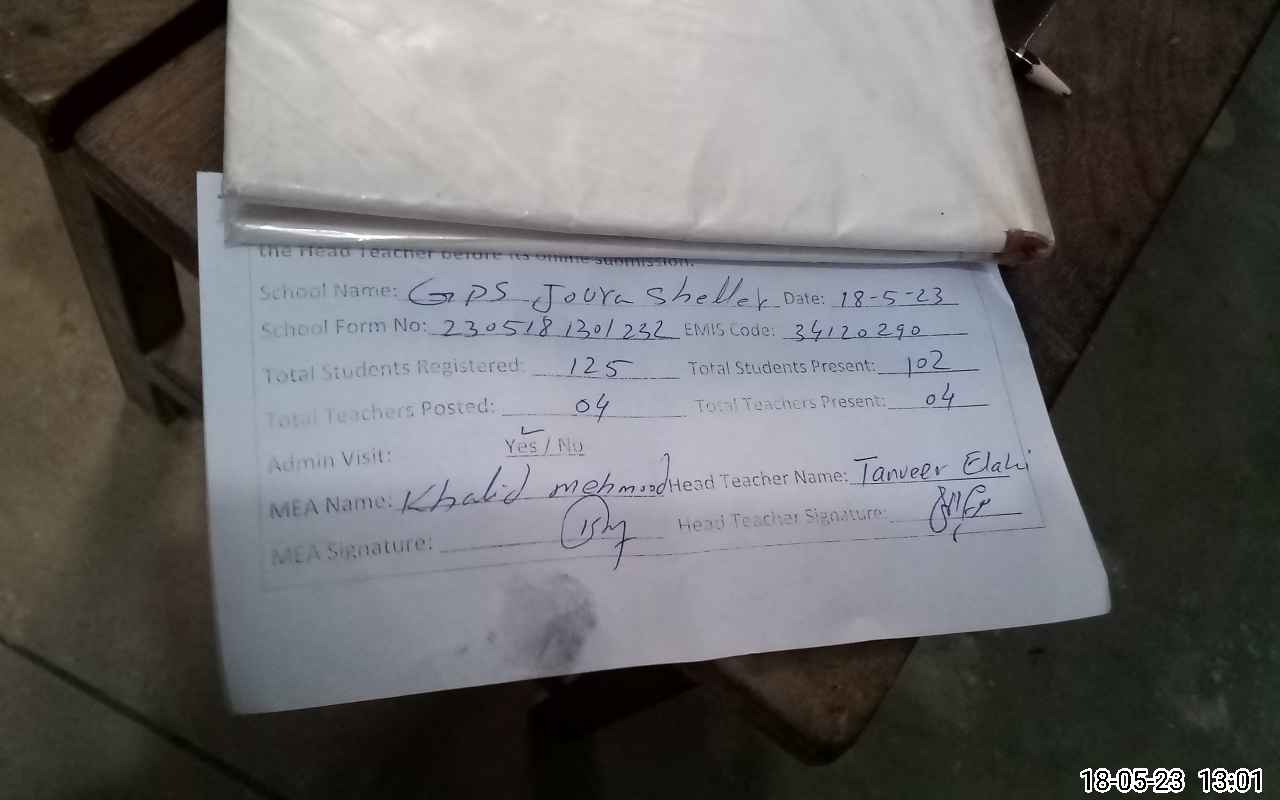 the Head Teacher before its online submission.
School Name: GPS Joura Sheller Date: 18-5-23
School Form No: 2305181301232 EMIS Code: 34120290
Total Students Registered: 125 Total Students Present: 102
Total Teachers Posted: 04 Total Teachers Present: 04
Admin Visit: Yes / No
MEA Name: Khalid mehmood Head Teacher Name: Tanveer Elahi
MEA Signature: Head Teacher Signature:
18-05-23 13:01